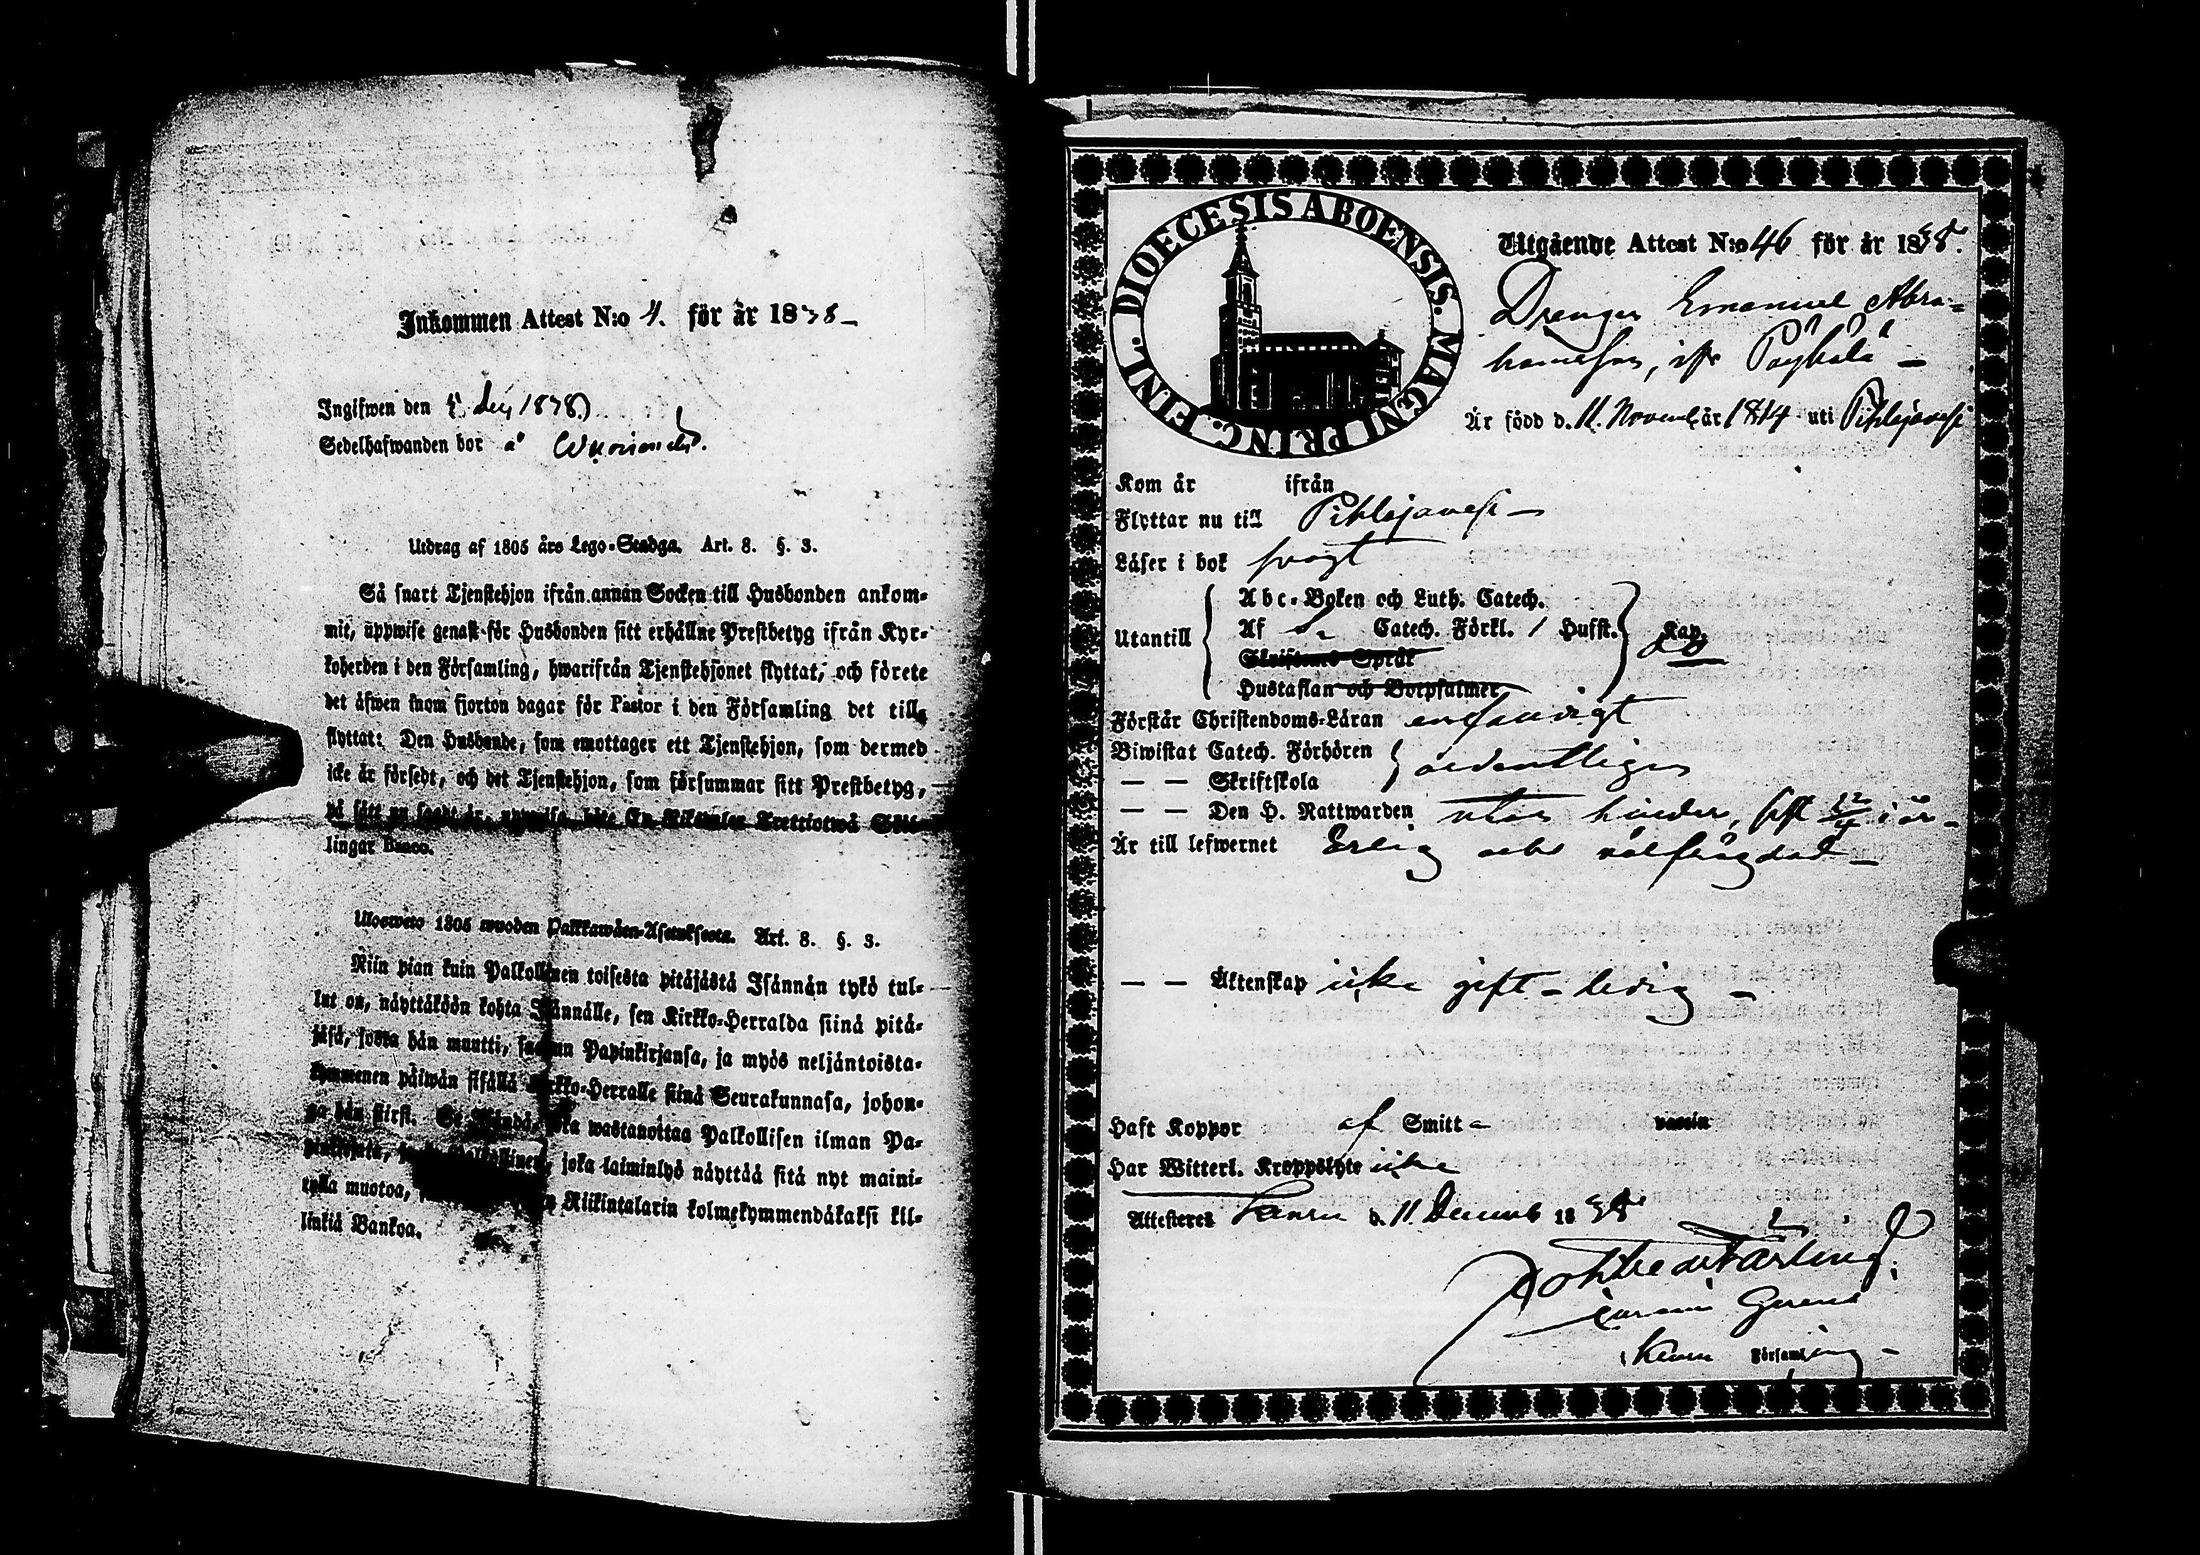 Inkommen Attest N:o 4. för år 1838
Ingifwen den
Sedelhafwanden bor å
Utdrag af 1805 års Lego-Stadga. Art. 8. §. 3.
Så snart Tjenstehjon ifrån annan Socken till Husbonden ankom-
mit, uppwise genast för Husbonden sitt erhållne Prestbetyg ifrån Kyr-
koherden i den Församling, hwarifrån Tjenstehjonet flyttat, och förete
det äfwen inom fjorton dagar för Pastor i den Församling det till
flyttat: Den Husbonde, som emottager ett Tjenstehjon, som dermed
icke är försedt, och det Tjenstehjon, som försummar sitt Prestbetyg,
på sätt nu sagdt är, uppwisa, böte En Riksdaler Trettiotwå Skil-
lingar Banco.
Ulosweto 1805 wuoden Palkkawäen-Asetuksesta. Art. 8. §. 3.
Niin pian kuin Palkollinen toisesta pitäjästä Isännän tykö tul-
lut on, näyttäköön kohta Isännälle, sen Kirkko-Herralda siinä pitä-
jäsä, josta hän muutti, saadun Papinkirjansa, ja myös neljäntoista-
kymmenen päiwän sisällä Kirkko-Herralle siinä Seurakunnasa, johon-
ga hän siirsi. Se Isändä, joka wastanottaa Palkollisen ilman Pa-
pinkirjata, joka laiminlyö näyttää sitä nyt maini-
tulla muotoa, Riikintalarin kolmekymmendäkaksi kil-
linkiä Bankoa.
FINL. DIOECESIS ABOENSIS. MAGNI PRINC.
Utgående Attest N:o 46 för år 1838.
Drengen Emanuel Abra-
hamsson, ifr
Är född d. 11. Novemb år 1814 uti Pihlajavesi
Kom år ifrån
Flyttar nu till Pihlajavesi
Läser i bok svagt
Utantill
Abc-Boken och Luth. Catech.
Af Catech. Förkl. / Husst. Kap.
Skriftenes Språk
Hustaflan och Botpsalmer
Förstår Christendoms-Läran enfaldigt
Biwistat Catech. Förhören ordentligen
— — Skriftskola
— — Den H. Nattwarden utan hinder, sist i år
Är till lefwernet Ärlig och välfrägdad
— — Äktenskap icke gift - ledig
Haft Koppor af Smitta vaccin
Har Witterl. Kroppslyte icke
Attesteras d. 11 Decemb 1838
i Församling